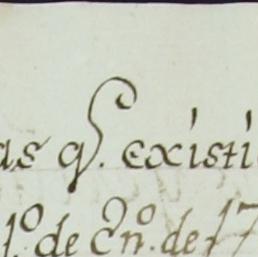 as q. existi
1.º de En.º de 17